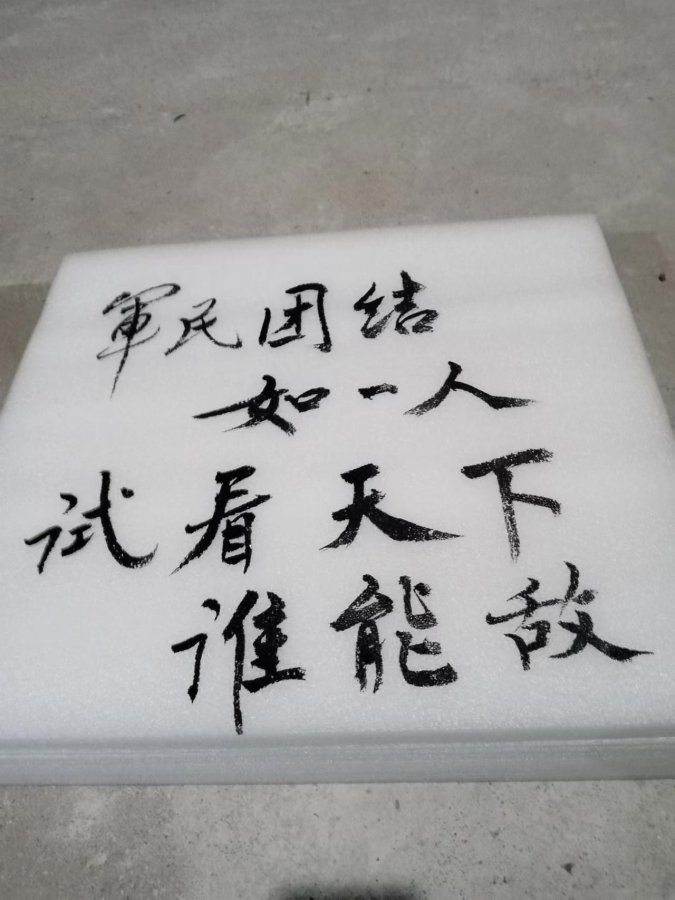 軍民团结
如一人
试看天下
谁能敌